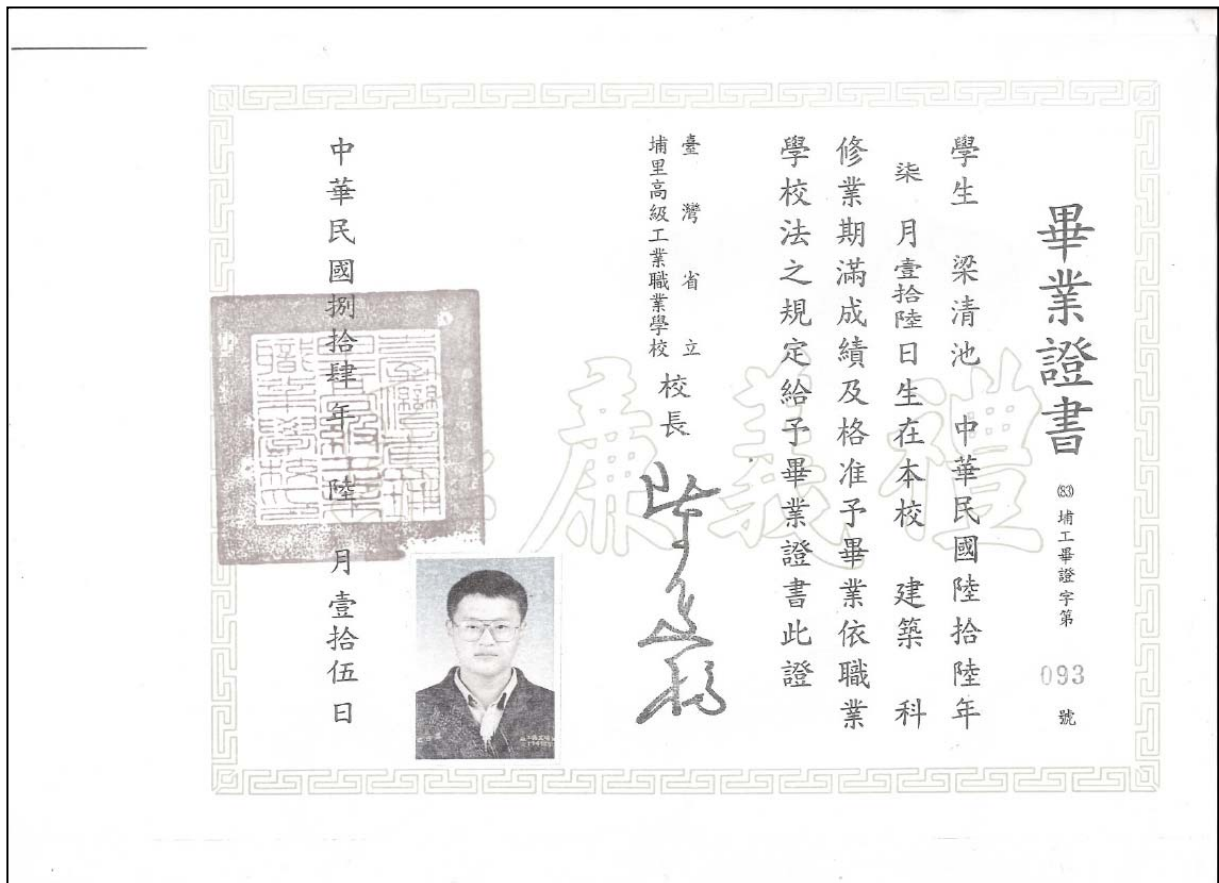 畢業證書
(83)埔工畢證字第 093 號
學生 梁清池 中華民國陸拾陸年
柒月壹拾陸日生在本校 建築 科
修業期滿成績及格准予畢業依職業
學校法之規定給予畢業證書此證
臺灣省立
埔里高級工業職業學校
校長
中華民國捌拾肆年 陸 月壹拾伍日
禮義廉